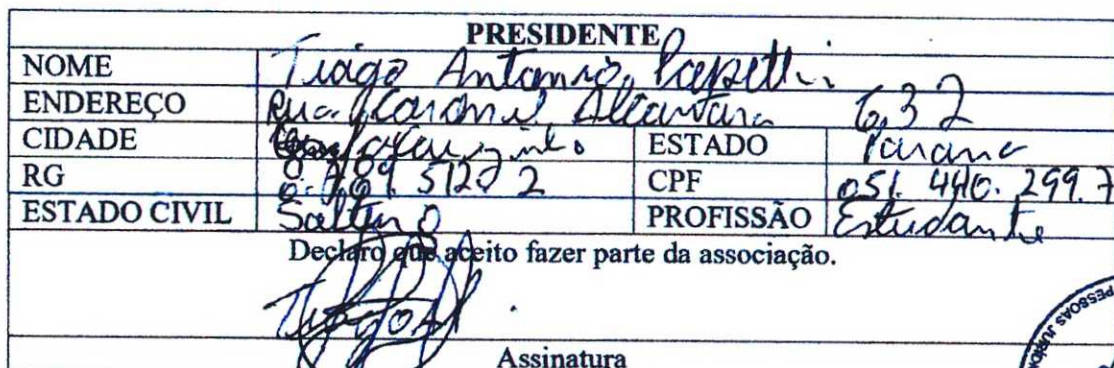 PRESIDENTE
NOME Tiago Antonio
ENDEREÇO Rua Coronel Alcantara 632
CIDADE ESTADO Parana
RG CPF 051. 440. 299.7
ESTADO CIVIL Solteiro PROFISSÃO Estudante
Declaro que aceito fazer parte da associação.
Assinatura
PESSOAS JURÍDI